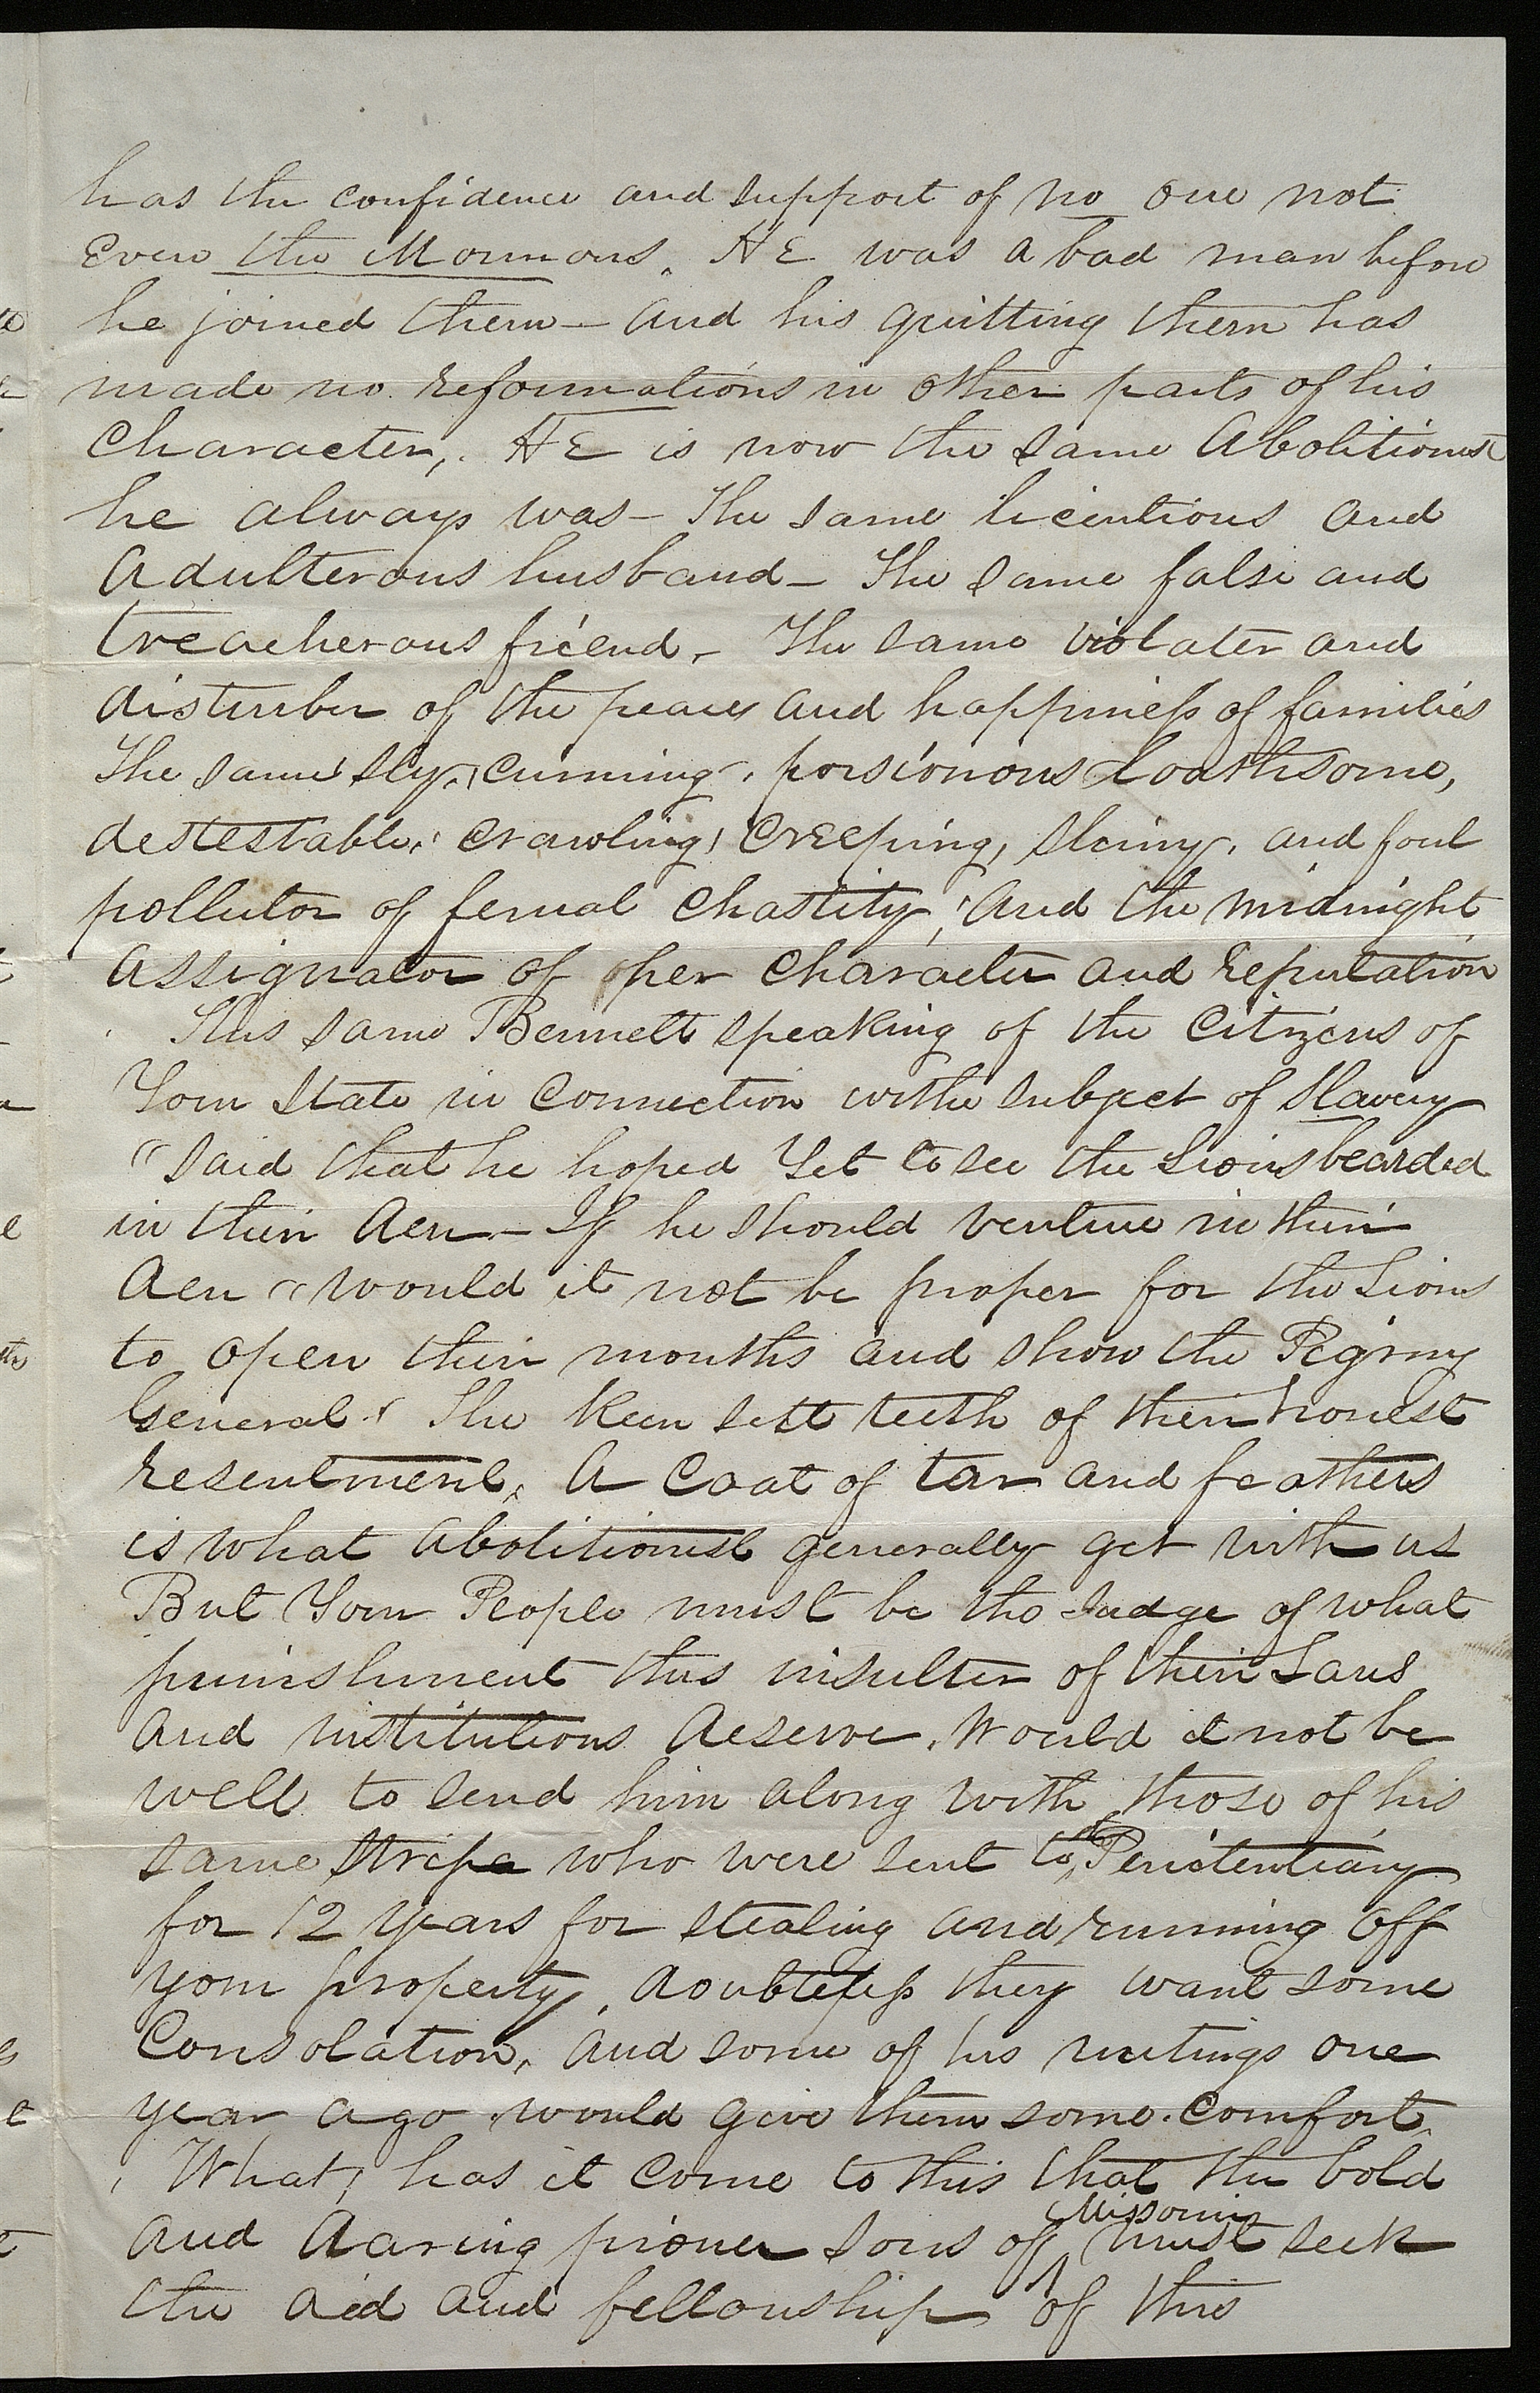 has the confidence and support of no one not
Even the Mormons. HE was a bad man before
he joined them — and his quitting them has
made no reformations in other parts of his
Character,. HE is now the same Abolitionist
he always was — The same licentious and
Adulterous husband — The same false and
treacherous friend, — The same violater and
disturber of the peace and happiness of families
The same sly, cunning, poisionous Loathsome,
destestable, crawling, creeping, slimy, and foul
pollutor of femal Chastity, And the midnight
Assignator of her Character and reputation
This same Bennett speaking of the Citizens of
Your State in Connection withe subject of Slavery
"said that he hoped Yet to see the Lions bearded
in their den — If he should venture in their
den "would it not be proper for the Lions
to open their mouths and show the Pigmy
General, The keen sett teeth of their honest
resentment, A Coat of tar and feathers
is what abolitionist generally get with us
But Your People must be the Judge of what
punishment this insulter of their Laws
and institutions deserve. Would it not be
well to send him along with those of his
same stripe who were sent to the Penitentiary
for 12 years for stealing and running off
your property, doubtless they want some
Consolation, and some of his writings one
year ago would give them some comfort.
What, has it come to this that the bold
and daring pioner sons of Missouri must seek
the aid and fellowship of this